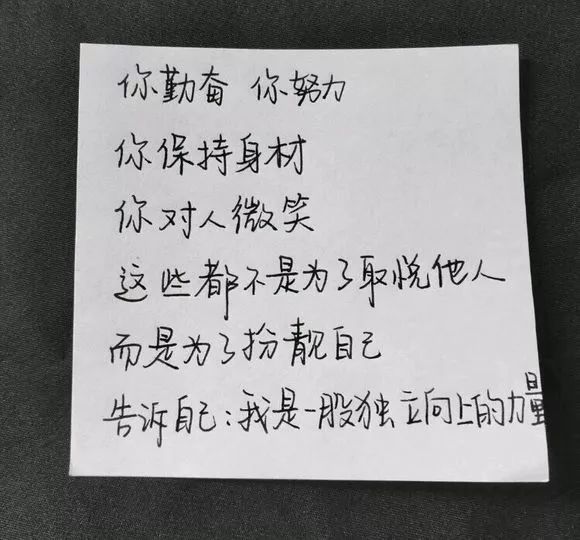 你勤奋 你努力
你保持身材
你对人微笑
这些都不是为了取悦他人
而是为了扮靓自己
告诉自己:我是一股独立向上的力量